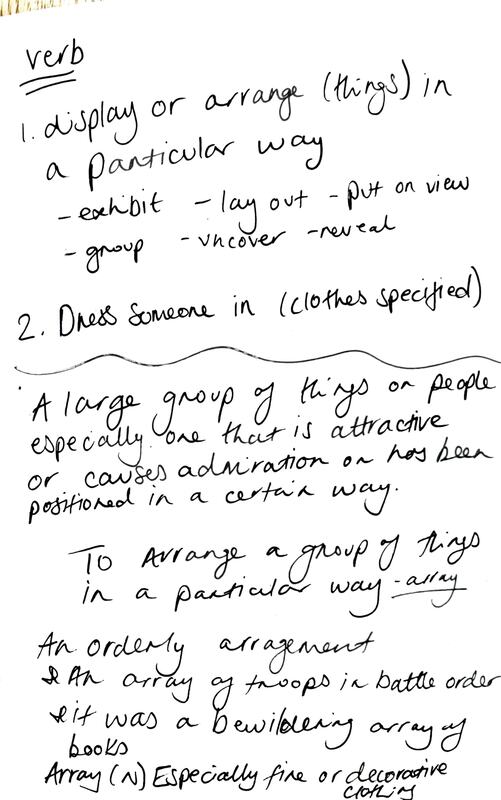 verb
1. display or arrange (things) in
a particular way
- exhibit - lay out - put on view
- group - uncover - reveal
2. Dress someone in (clothes specified)
A large group of things or people
especially one that is attractive
or causes admiration or has been
positioned in a certain way.
To Arrange a group of things
in a particular way - array
An orderly arragement
& An array of troops in battle order
& it was a bewildering array of
books
Array (N) Especially fine or decorative
clothing